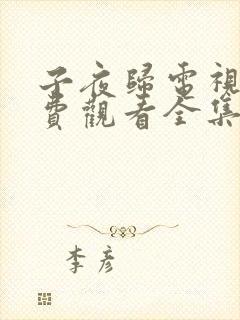 子夜歸電視
費觀看全集
李彥